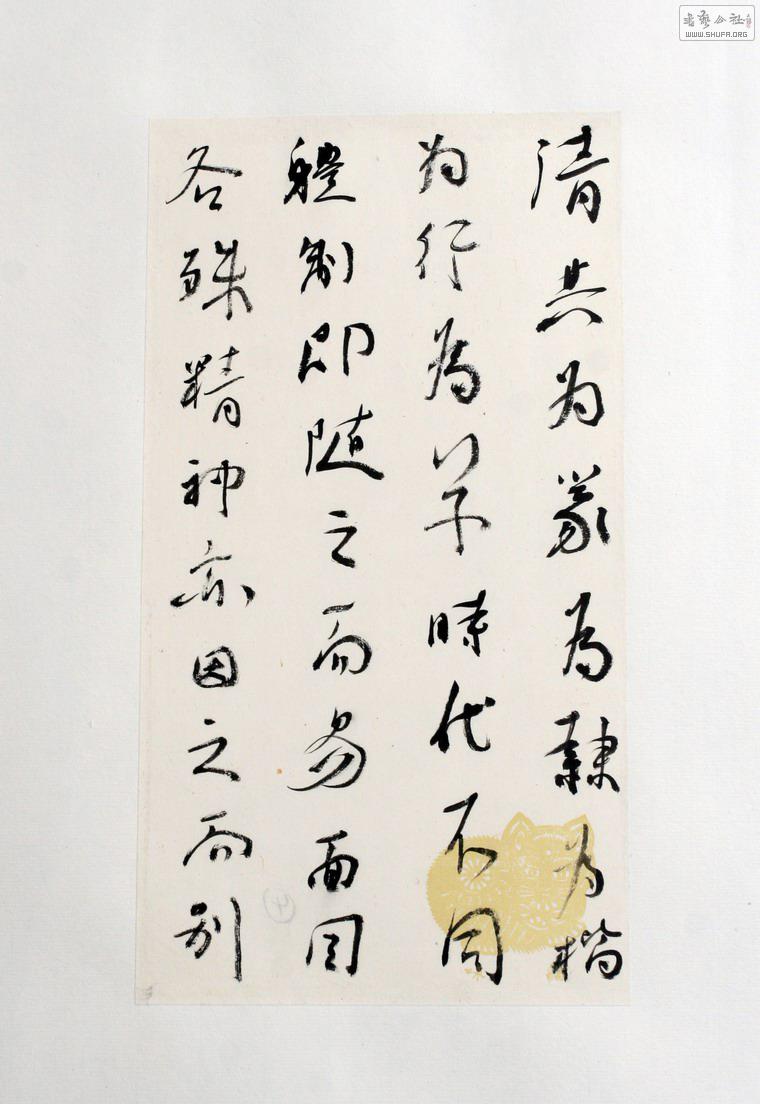 清其为篆為隸为楷
为行為草時代不同
體制即随之而易面目
各殊精神亦因之而别
書藝公社
WWW.SHUFA.ORG